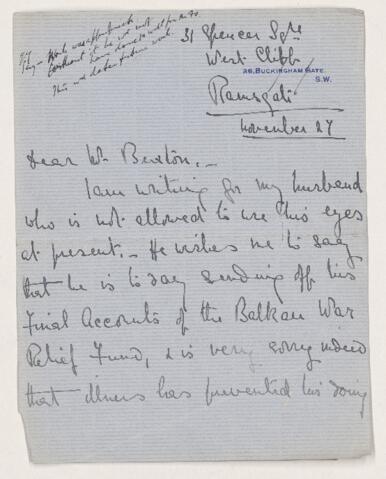 31 Spencer Sqre
West Cliff
26, BUCKINGHAM GATE,
S.W.
Ramsgate
November 27
Dear Mr Buxton, -
I am writing for my husband
who is not allowed to use his eyes
at present. - He wishes me to say
that he is to day sending off his
Final Accounts of the Balkan War
Relief Fund, & is very sorry indeed
that illness has prevented his doing